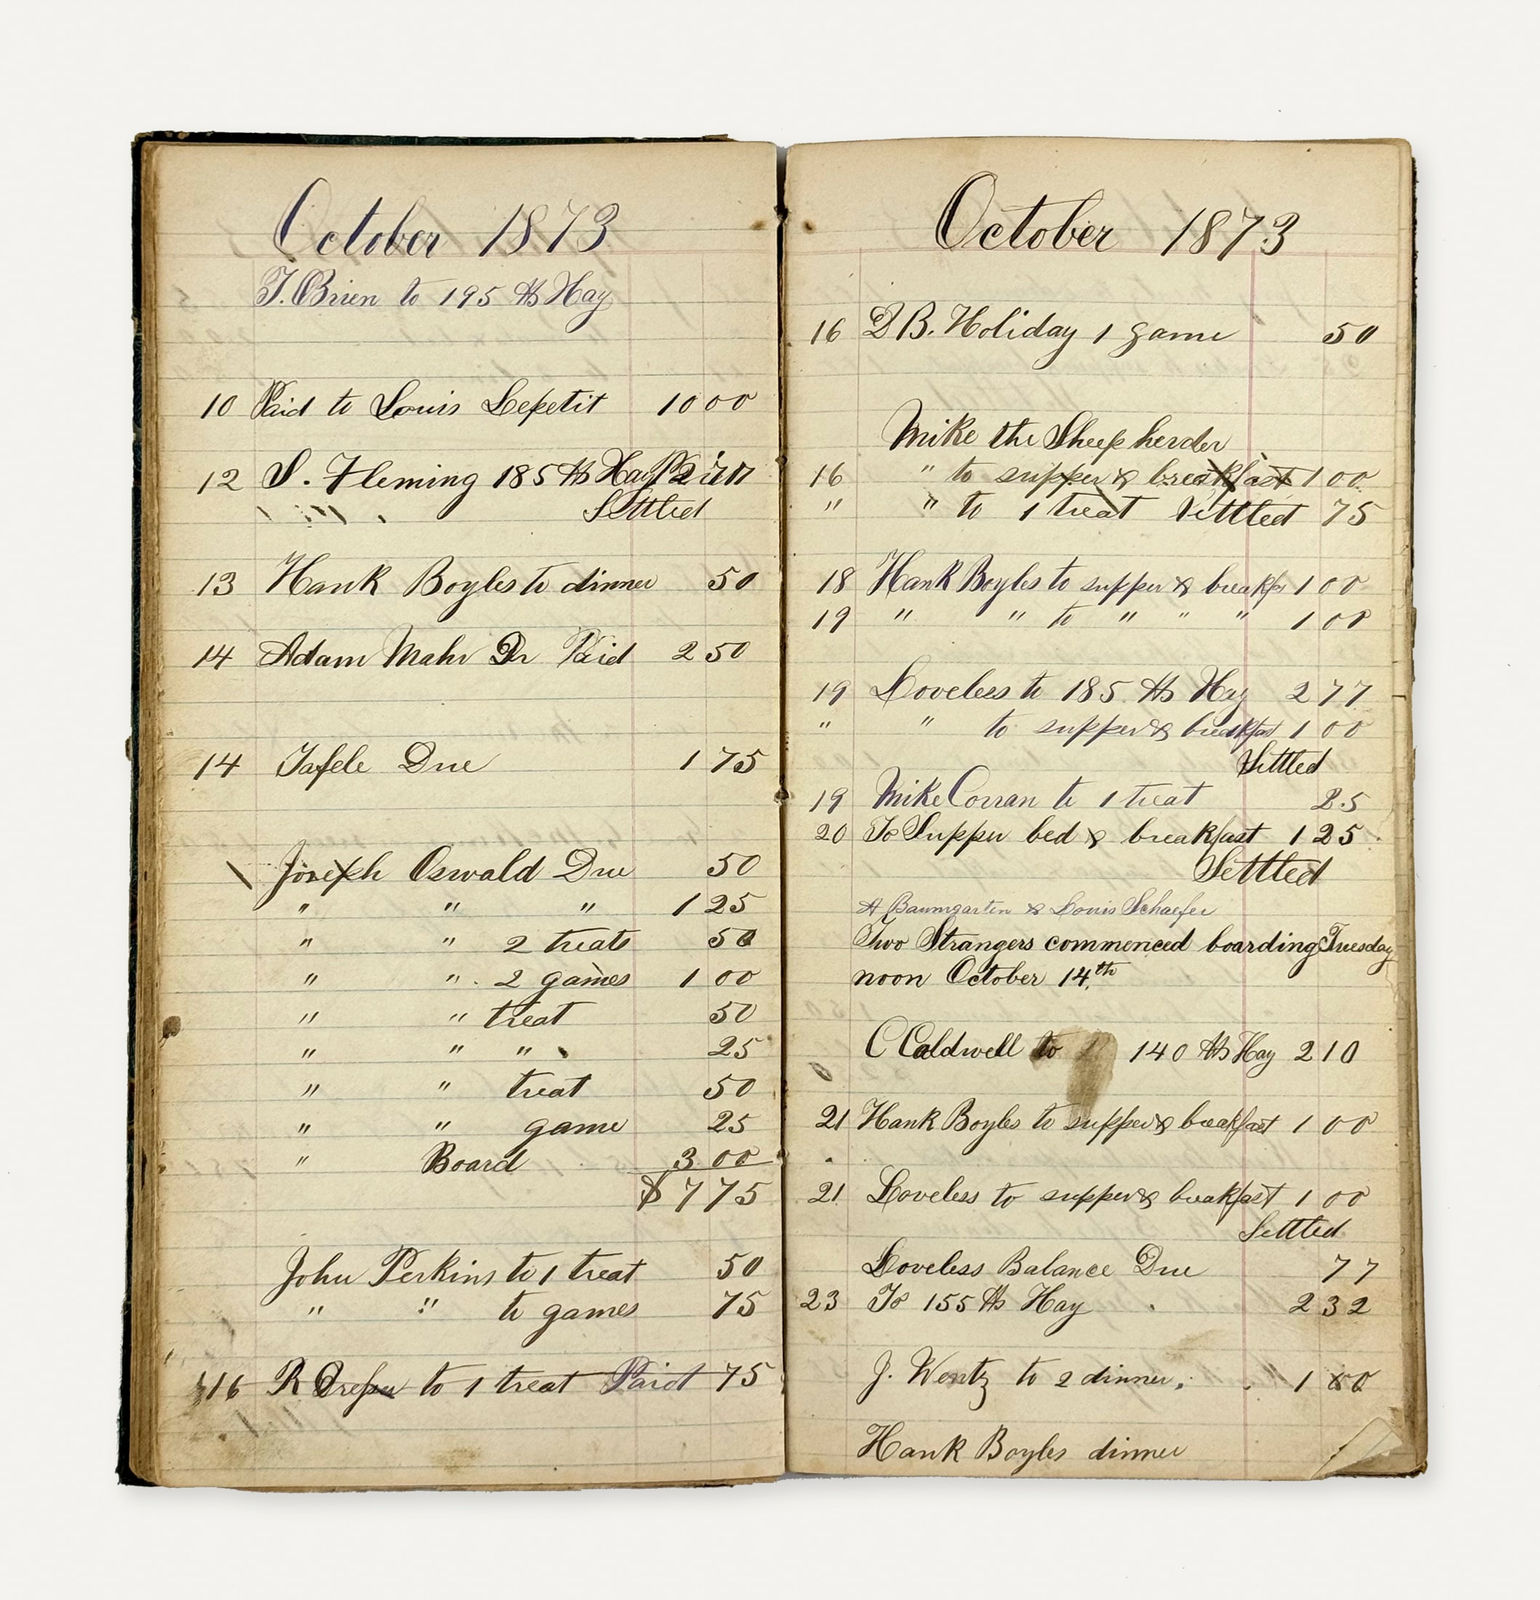 October 1873
T. O'Brien to 195 lbs Hay
10 Paid to Louis Lepetit 10 00
12 S. Fleming 185 lbs Hay
Settled
13 Hank Boyles to dinner 50
14 Adam Mahr Dr Paid 2 50
14 Tafele Due 1 75
Joseph Oswald Due 50
" " " 1 25
" " 2 treats 50
" " 2 games 1 00
" " treat 50
" " " 25
" " treat 50
" " game 25
" Board 3 00
$ 7 75
John Perkins to 1 treat 50
" " to games 75
16 R to 1 treat Paid 75
October 1873
16 D B. Holiday 1 game 50
Mike the Sheep herder
16 " to supper & breakfast 1 00
" " to 1 treat Settled 75
18 Hank Boyles to supper & breakfs 1 00
19 " " to " " " 1 00
19 Loveless to 185 lbs Hay 2 77
" " to supper & breakfas 1 00
Settled
19 Mike Corran to 1 treat 25
20 To Supper bed & breakfast 1 25
Settled
A Baumgarten & Louis Schaefer
Two Strangers commenced boarding Tuesday
noon October 14th
C Caldwell to 140 lbs Hay 2 10
21 Hank Boyles to supper & breakfast 1 00
21 Loveless to supper & breakfast 1 00
Settled
Loveless Balance Due 77
23 To 155 lbs Hay 2 32
J. Wentz to 2 dinner. 1 00
Hank Boyles dinner